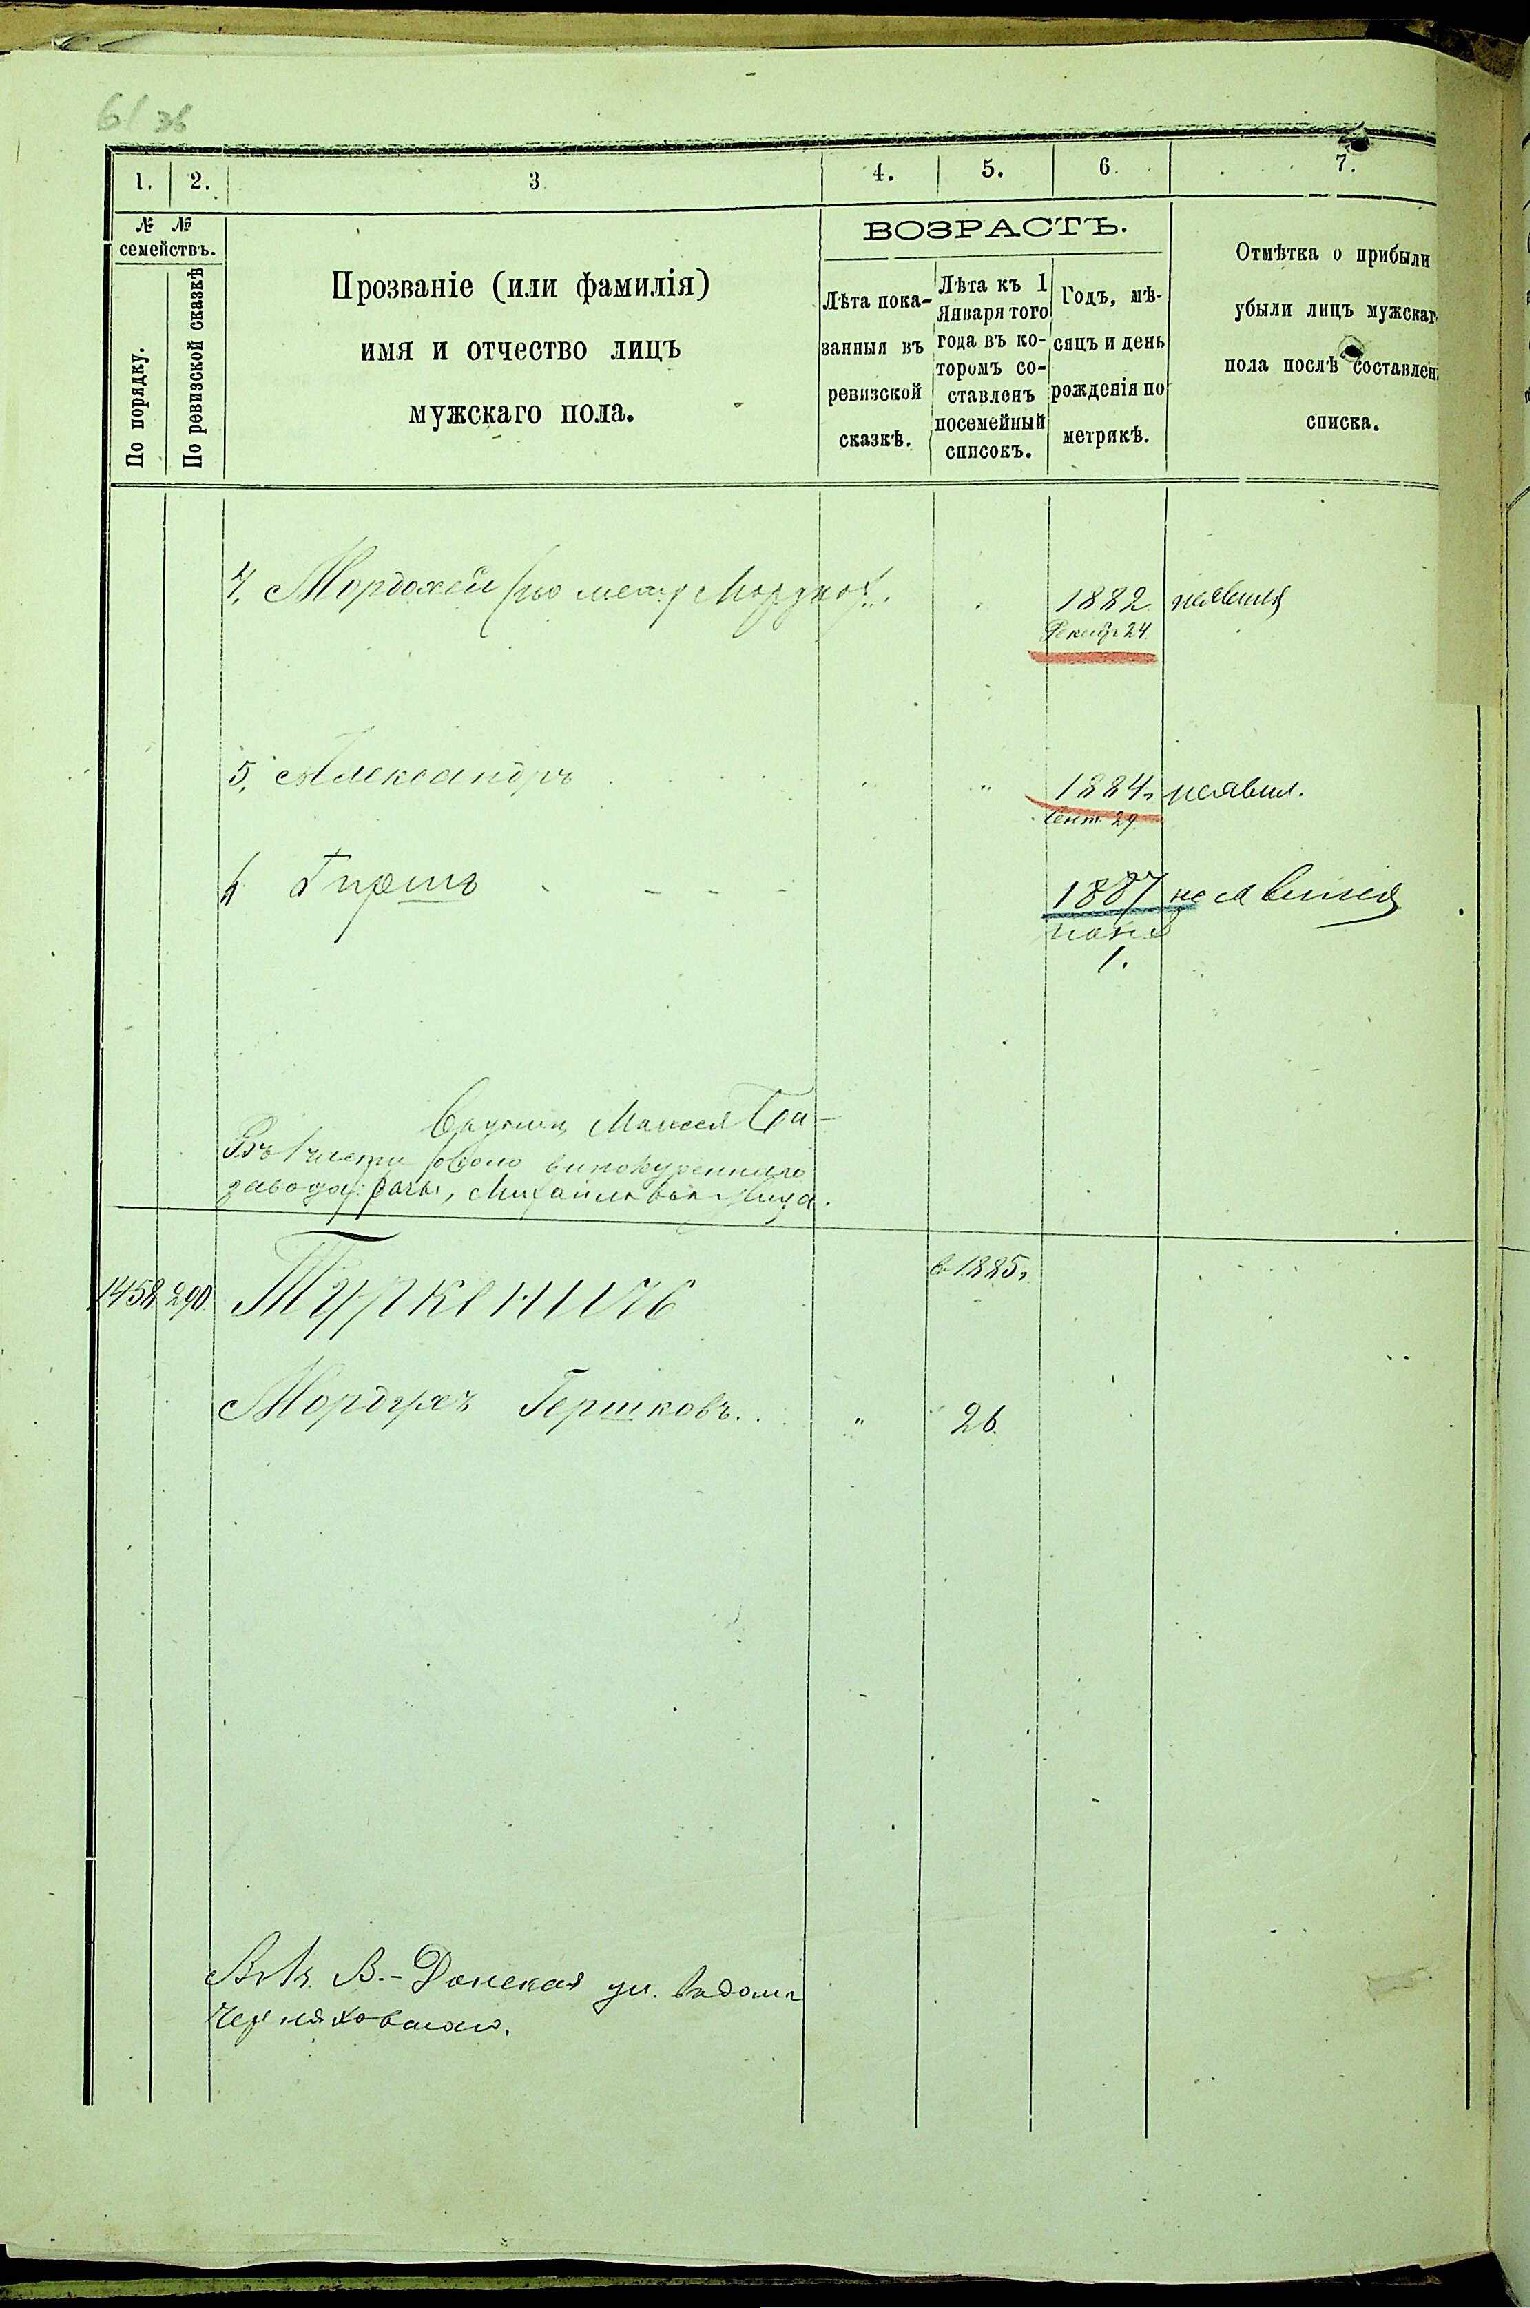 61 зв
1. 2. 3 4. 5. 6. 7.
№ №
семействъ.
По порядку.
По ревизской сказкѣ
Прозваніе (или фамилія)
имя и отчество лицъ
мужскаго пола.
ВОЗРАСТЪ.
Лѣта пока-
занныя въ
ревизской
сказкѣ.
Лѣта къ 1
Января того
года въ ко-
торомъ со-
ставленъ
посемейный
списокъ.
Годъ, мѣ-
сяцъ и день
рожденія по
метрикѣ.
Отмѣтка о прибыли
убыли лицъ мужскаг
пола послѣ составлен
списка.
4, Мордохей (по метр Мордухъ). 1882
Декабр 24
5, Александръ " 1884, неявил.
Сент. 29
6 Гиршъ 1887 неявился
1.
Моисея
Въ 1 части винокуреннаго
завода
1458 290 Туркеничъ в 1885,
Мордухъ Гершковъ. " 26.
В.-Донская ул. в домѣ
Черняховскаго.